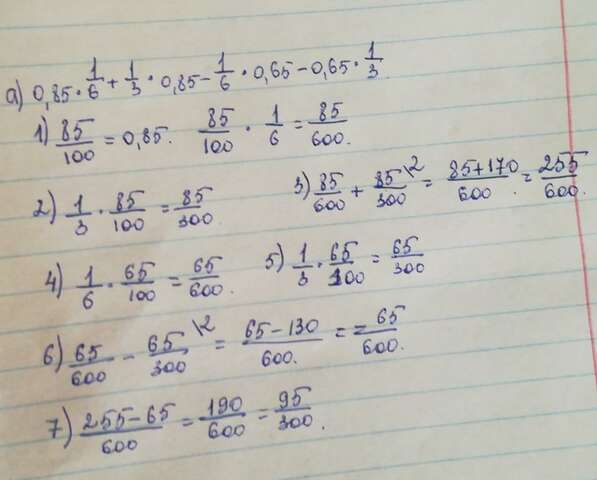 а) 0,85 · 1/6 + 1/3 · 0,85 − 1/6 · 0,65 − 0,65 · 1/3
1) 85/100 = 0,85. 85/100 · 1/6 = 85/600.
2) 1/3 · 85/100 = 85/300
3) 85/600 + 85\2/300 = 85+170/600 = 255/600.
4) 1/6 · 65/100 = 65/600.
5) 1/3 · 65/100 = 65/300
6) 65/600 − 65\2/300 = 65−130/600. = −65/600.
7) 255−65/600 = 190/600 = 95/300.